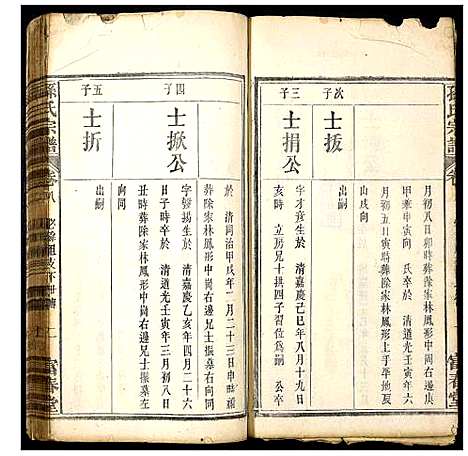 孫氏宗譜
卷
月初八日卯時葬餘家林鳳形中間右邊庚
甲兼寅申寅向 氏卒於 清道光壬寅年六
月初五日寅時葬除家林鳳形上手平地
山戌向
次子
士扳
出嗣
三子
士捐公
字才彥生於 清嘉慶己巳年八月十九日
亥時 立房兄士拱四子習位為嗣 公卒
於 清同治甲戌年二月二十三日
葬除家林鳳形中間右邊右向同
四子
士掀公
字發揚生於 清嘉慶乙亥年四月二十六
日子時卒於 清道光壬寅年三月初八日
丑時葬除家林鳳形中間右邊兄士振墓左
向同
五子
士折
出嗣
孫氏宗譜
卷八
二
富春堂